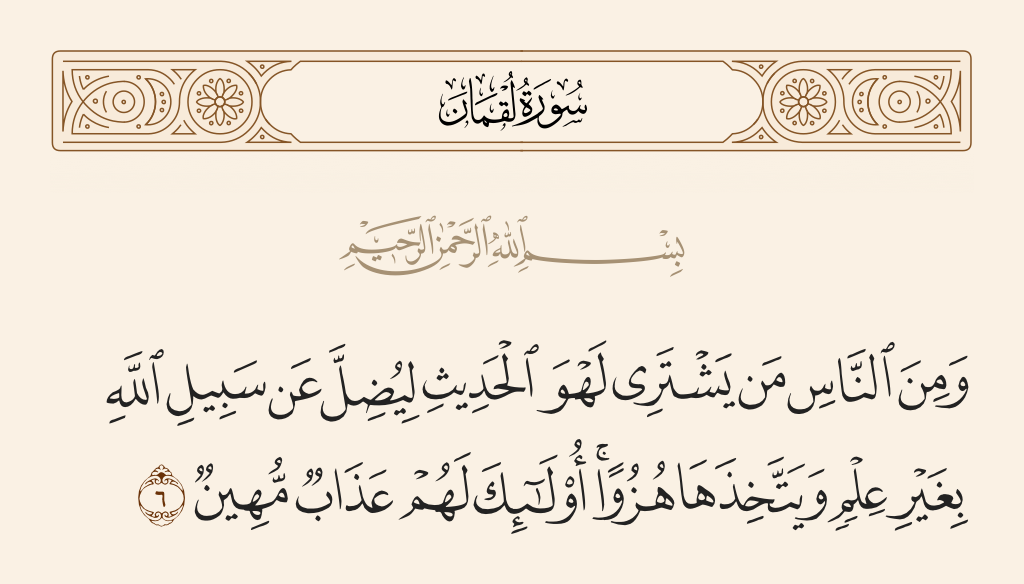 سُورَةُ لُقْمَان
بِسْمِ ٱللَّهِ ٱلرَّحْمَٰنِ ٱلرَّحِيمِ
وَمِنَ ٱلنَّاسِ مَن يَشْتَرِى لَهْوَ ٱلْحَدِيثِ لِيُضِلَّ عَن سَبِيلِ ٱللَّهِ
بِغَيْرِ عِلْمٍ وَيَتَّخِذَهَا هُزُوًا ۚ أُو۟لَـٰٓئِكَ لَهُمْ عَذَابٌ مُّهِينٌ ٦